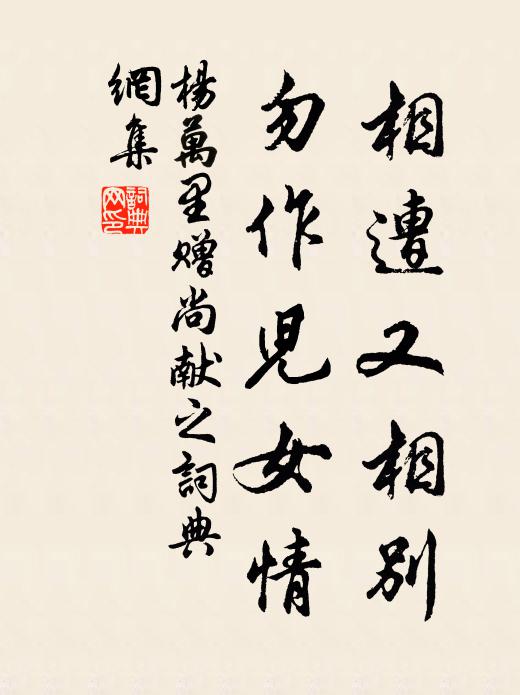 相遭又相別
勿作児女情
楊萬里贈尚献之詞典
網集
詞典網印